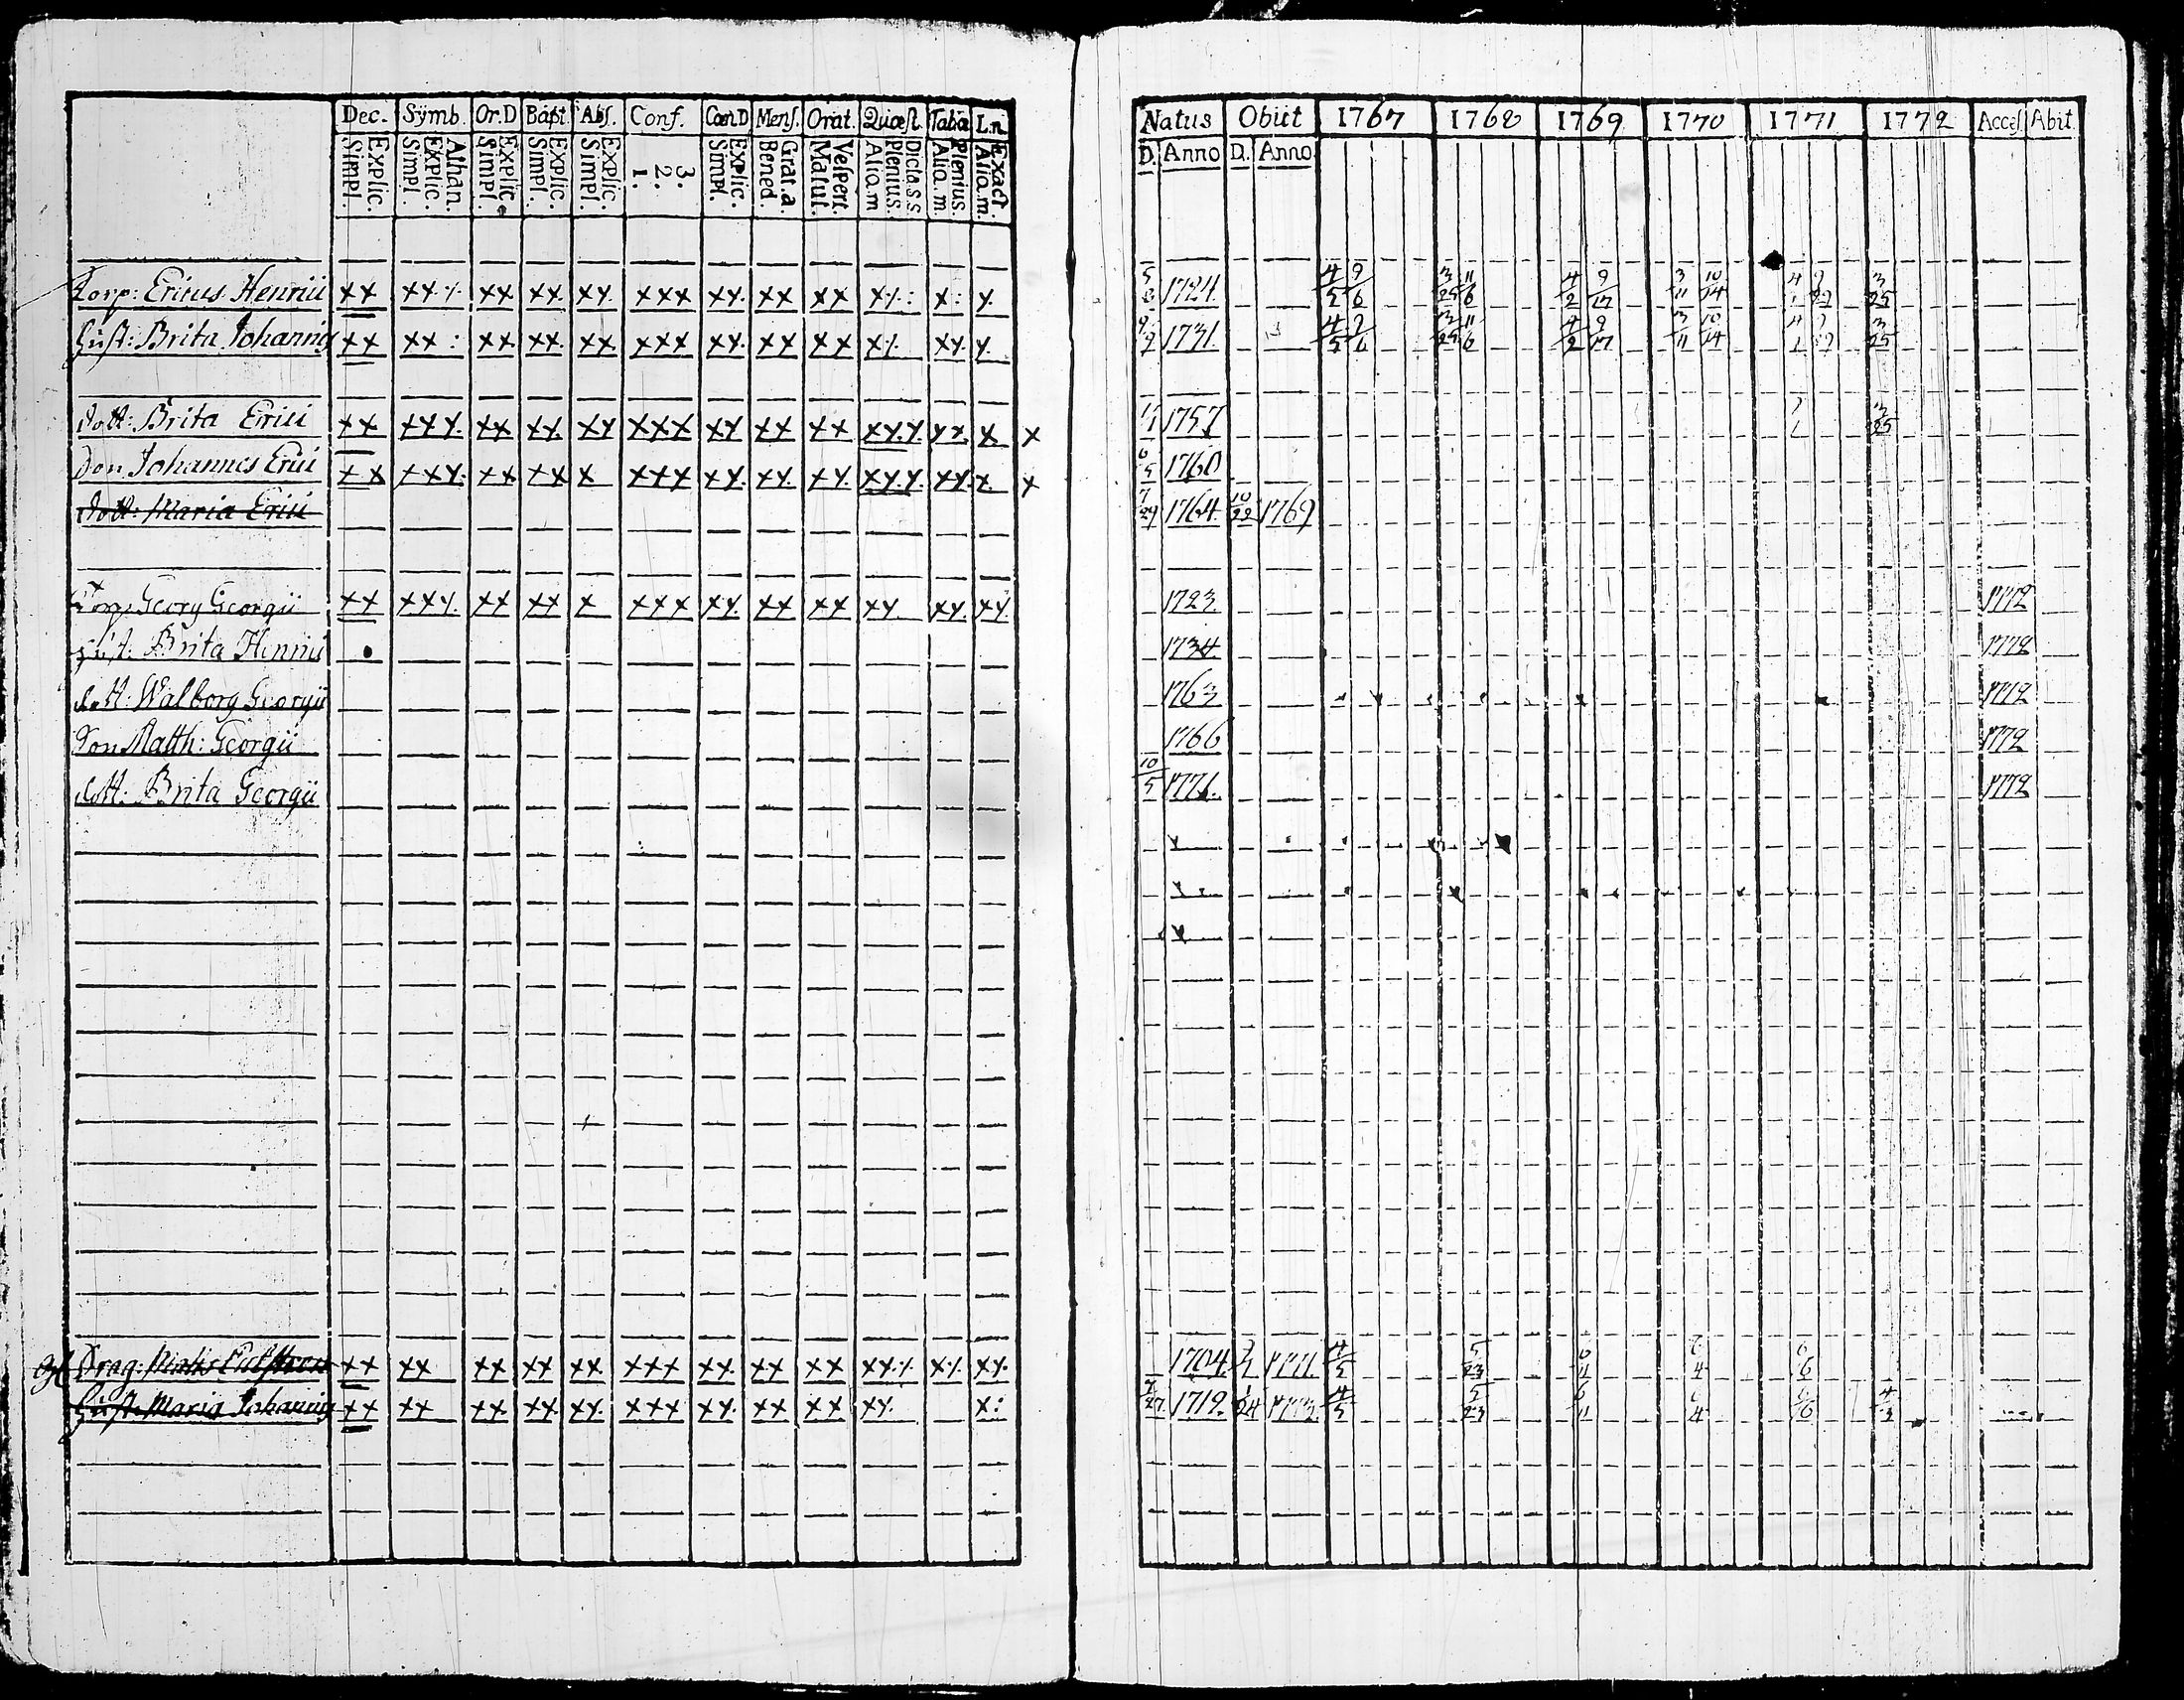 Dec. Symb. Or.D Bapt. Abs. Conf. CœnD Mens. Orat. Quæst. Tabla L.n.
Explic. Simpl. Athan. Explic. Simpl. Explic. Simpl. Explic. Simpl. Explic. Simpl. 3. 2. 1. Explic. Simpl. Grat.a. Bened. Vespert. Matut. Dictass Plenius. Alia.m Plenius. Alia.m Exact. Alia.m.
Natus Obiit 1767 1768 1769 1770 1771 1772 Access Abit.
D. Anno D. Anno
Torp: Ericus Henrici xx xx xx xx xx xxx xx xx xx x x: x 1724 4/5 9/6 3/25 11/6 4/2 9/17 3/11 10/14 3/25
Hust: Brita Johannis xx xx : xx xx xx xxx xx xx xx xx xx x 9/9 1731 4/5 9/6 3/25 11/6 4/2 9/17 3/11 10/14 3/25
dott: Brita Erici xx xxx xx xx xx xxx xx xx xx xxx xx x x 1757 3/25
Son Johannes Erici xx xxx xx xx x xxx xx xx xx xxx xx x x 6/5 1760
dott: Maria Erici 7/29 1764 10/22 1769
Torp Georg Georgii xx xxx xx xx x xxx xx xx xx xx xx xx 1723 1772
Hust: Brita Henrici 1734 1772
dott: Walborg Georgii 1763 1772
Son Matth: Georgii 1766 1772
dott: Brita Georgii 10/5 1771 1772
Drag: xx xx xx xx xx xxx xx xx xx xx x xx 1704 1771 4/5 5/23 6/11 6/4 6/6
Hust: Maria Johannis xx xx xx xx xx xxx xx xx xx xx x: 1712 1/24 1773 4/5 5/23 6/11 6/4 6/6 4/3